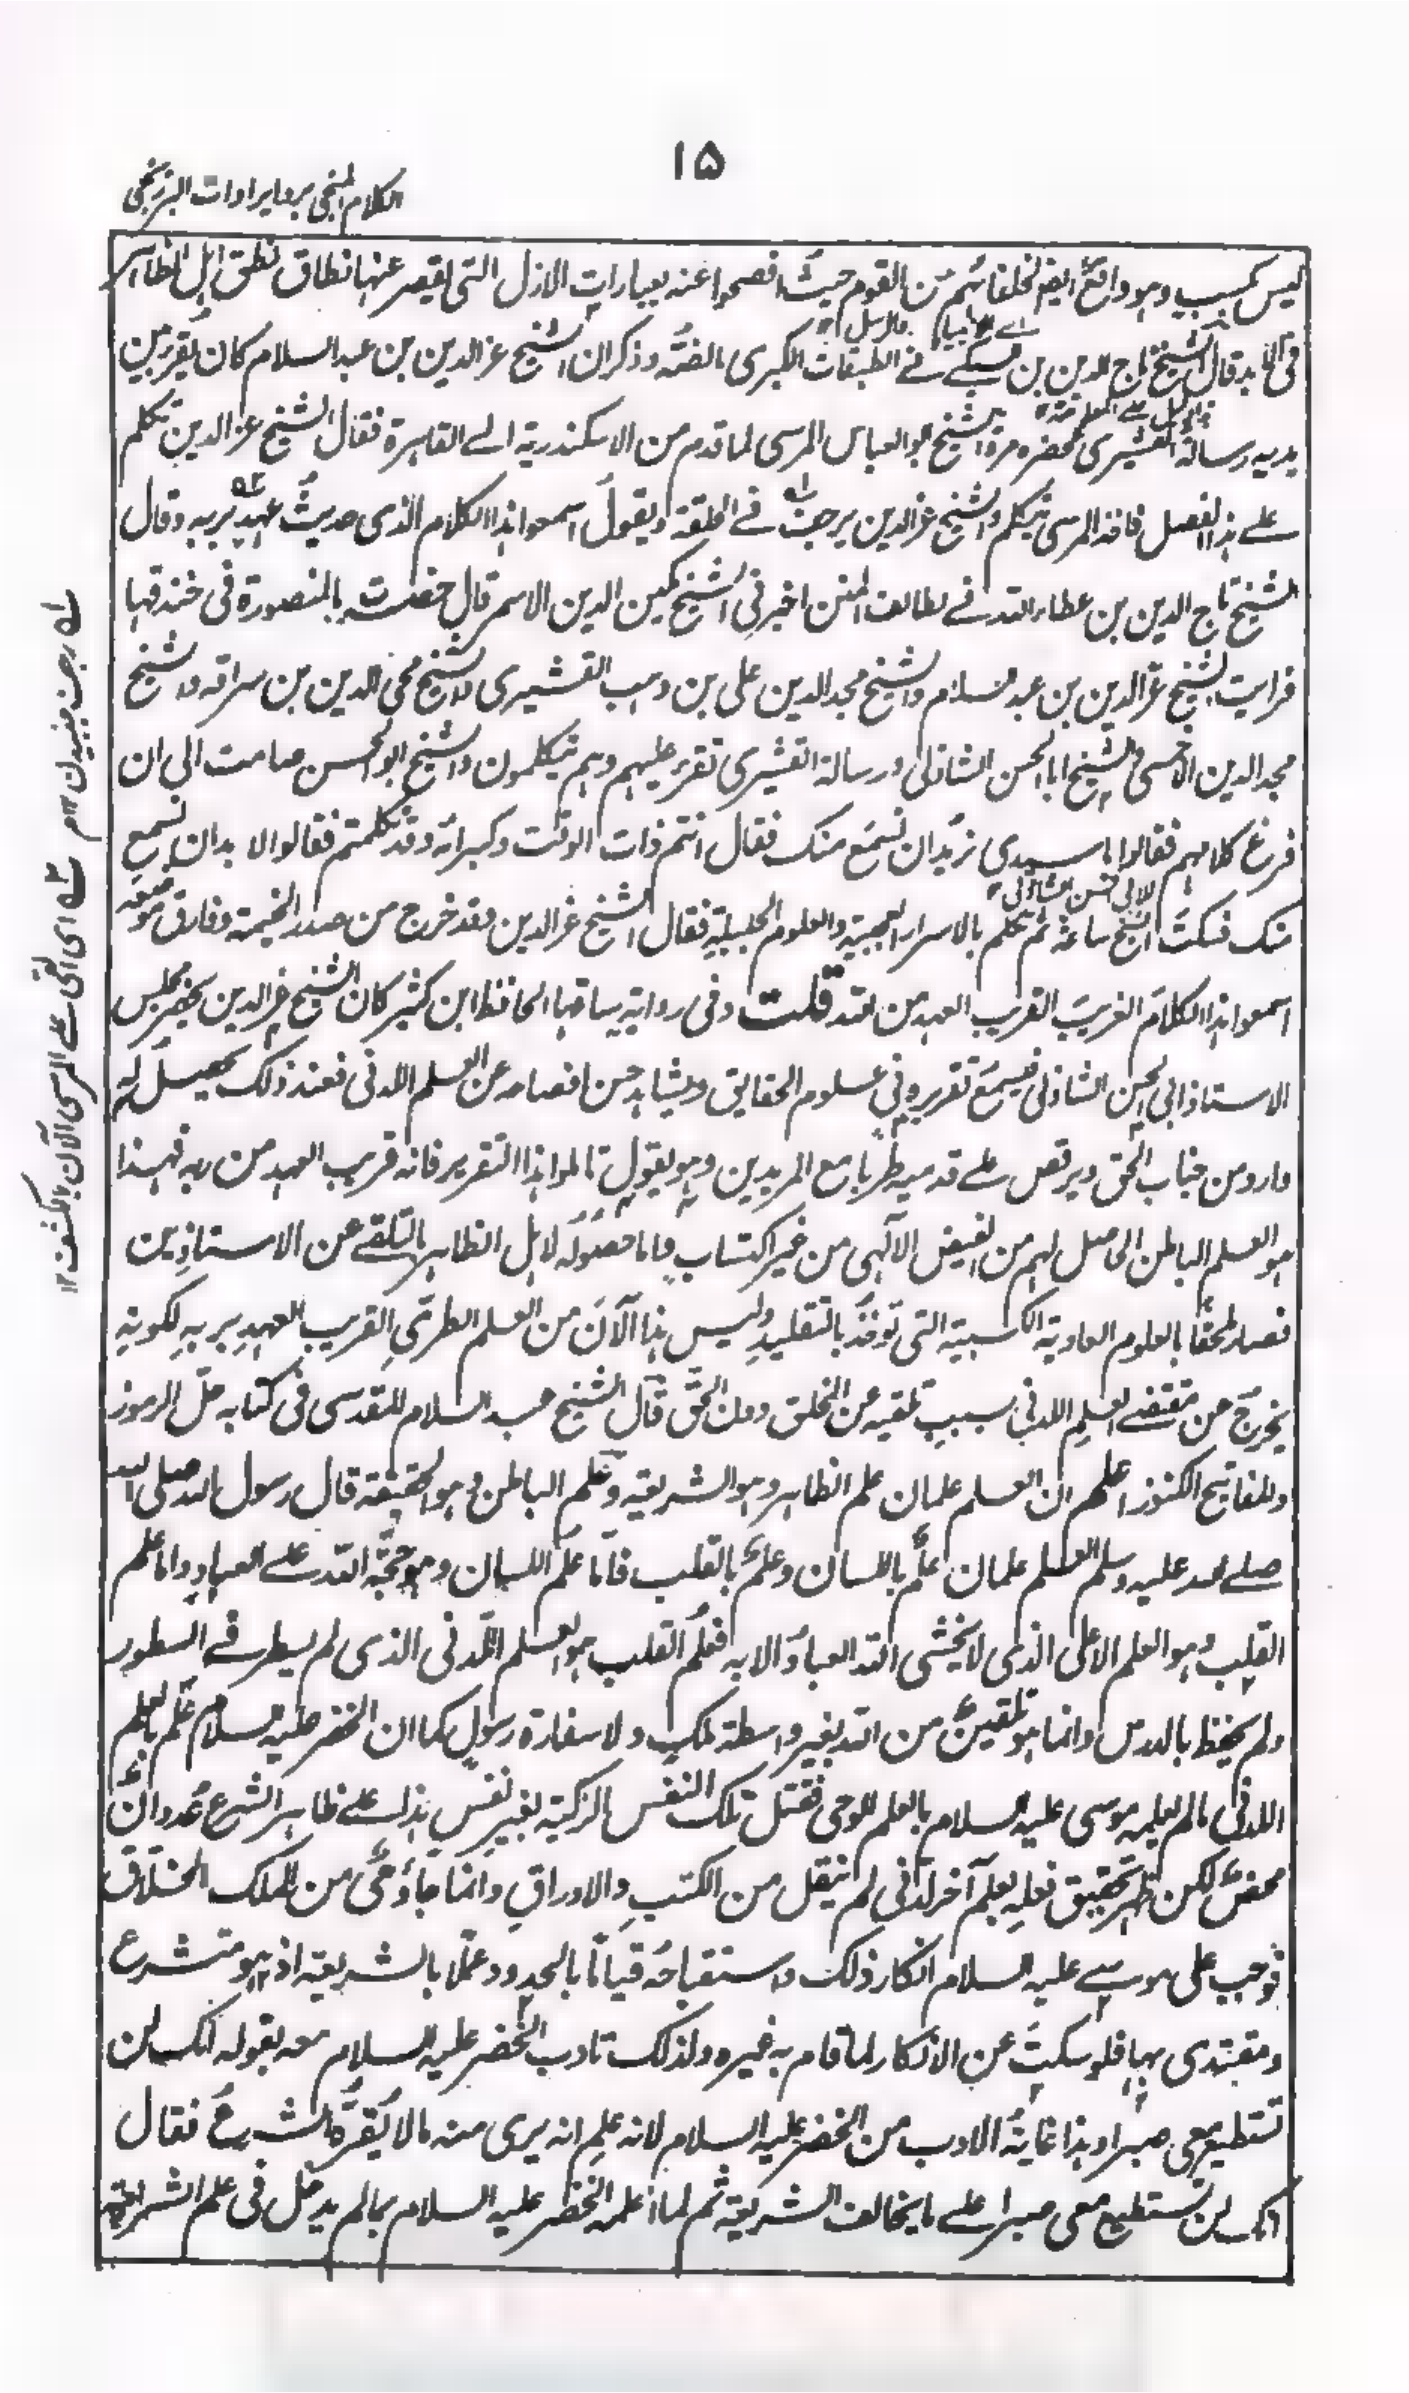 ۱۵
الكلام المنجى برد ايرادات البرزنجى
ليس بكسب وهو واقع ايضا لخلفائهم من القوم حيث افصحوا عنه بعبارات الازل التى يقصر عنها نطاق نطق اهل الظاهر
اى الانبيا والرسل
قال الشيخ تاج الدين بن السبكے فے الطبقات الكبرى وذكر ان الشيخ عز الدين بن عبد السلام كان يقرء بين
يديه رسالة القشيرى فحضره مرة الشيخ ابو العباس المرسى لما قدم من الاسكندرية الے القاهرة فقال الشيخ عز الدين تكلم
علے هذا الفصل فاخذ المرسى يتكلم والشيخ عز الدين يرجف فے الحلقة ويقول اسمعوا هذا الكلام الذى حديث عهد بربه وقال
الشيخ تاج الدين بن عطاء الله فے لطائف المنن اخبرنى الشيخ مكين الدين الاسمر قال حضرت بالمنصورة فى خندقها
فرايت الشيخ عز الدين بن عبد السلام والشيخ مجد الدين على بن وهب القشيرى والشيخ محى الدين بن سراقه والشيخ
مجد الدين الاخميمى والشيخ ابا الحسن الشاذلى ورسالة القشيرى تقرء عليهم وهم يتكلمون والشيخ ابو الحسن صامت الى ان
فرغ كلامهم فقالوا يا سيدى نريد ان نسمع منك فقال انتم ذات الوقت وكبرائه وقد تكلمتم فقالوا لا بد ان نسمع
لابى الحسن الشاذلى
منك فسكت الشيخ ساعة ثم تكلم بالاسرار العجيبة والعلوم الجليلة فقال الشيخ عز الدين وقد خرج من صدر الخيمة وفارق موضعه
اسمعوا هذا الكلام الغريب القريب العهد من الله قلت وفى رواية ساقها الحافظ ابن كثير كان الشيخ عز الدين يحضر مجلس
الاستاذ ابى الحسن الشاذلى فيسمع تقريره فى علوم الحقايق ويشاهد حسن افصاحه عن العلم اللدنى فعند ذلك يحصل له
وارد من جناب الحق ويرقص على قدميه طربا مع المريدين وهو يقول تاملوا هذا التقرير فانه قريب العهد من ربه فهذا
هو العلم الباطن الحاصل لهم من الفيض الآلهى من غير اكتساب واما حصوله لاهل الظاهر بالتلقے عن الاستاذين
فصار ملحقا بالعلوم العادية الكسبية التى توخذ بالتقليد وليس هذا الآن من العلم الطرى القريب العهد بربه لكونه
يخرج عن مقتضے العلم اللدنى بسبب تلقيه عن الخلق دون الحق قال الشيخ عبد السلام المقدسى فى كتابه حل الرموز
والمفاتيح الكنوز اعلم ان العلم علمان علم الظاهر وهو الشريعة وعلم الباطن وهو الحقيقة قال رسول الله صلى الله
صلے الله عليه وسلم العلم علمان علم باللسان وعلم بالقلب فاما علم اللسان وهو حجة الله علے العباد واما علم
القلب وهو العلم الاعلى الذى لا يخشى الله العباد الا به فعلم القلب هو العلم اللدنى الذى لم يسطر فے السطور
ولم يحفظ بالدرس وانما هو تلقين من الله بغير واسطة ملك ولا سفارة رسول كما ان الخضر عليه السلام علم بالعلم
اللدنى ما لم يعلمه موسى عليه السلام بالعلم الوحى فقتل تلك النفس الزكية بغير نفس بذلك علے ظاهر الشرع عدوان
محض لكن ظهر تحقيق فعله بعلم آخر لدنى لم ينقل من الكتب والاوراق وانما جاء وحى من الملك الخلاق
فوجب على موسے عليه السلام انكار ذلك واستقباحه قياما بالحدود وعملا بالشريعة اذ هو متشرع
ومقتدى بها فلو سكت عن الانكار لما قام به غيره ولذلك تادب الخضر عليه السلام معه بقوله انك لن
تستطيع معى صبرا وهذا غاية الادب من الخضر عليه السلام لانه علم انه يرى منه ما لا يقره الشرع فقال
انك لن تستطيع معى صبرا علے ما يخالف الشريعة ثم لما اعلمه الخضر عليه السلام بما لم يدخل فى علم الشرائع
سله رجف جنبيدن ۱۲
سله اى القى علے المرسى الآن بالكشف ۱۲